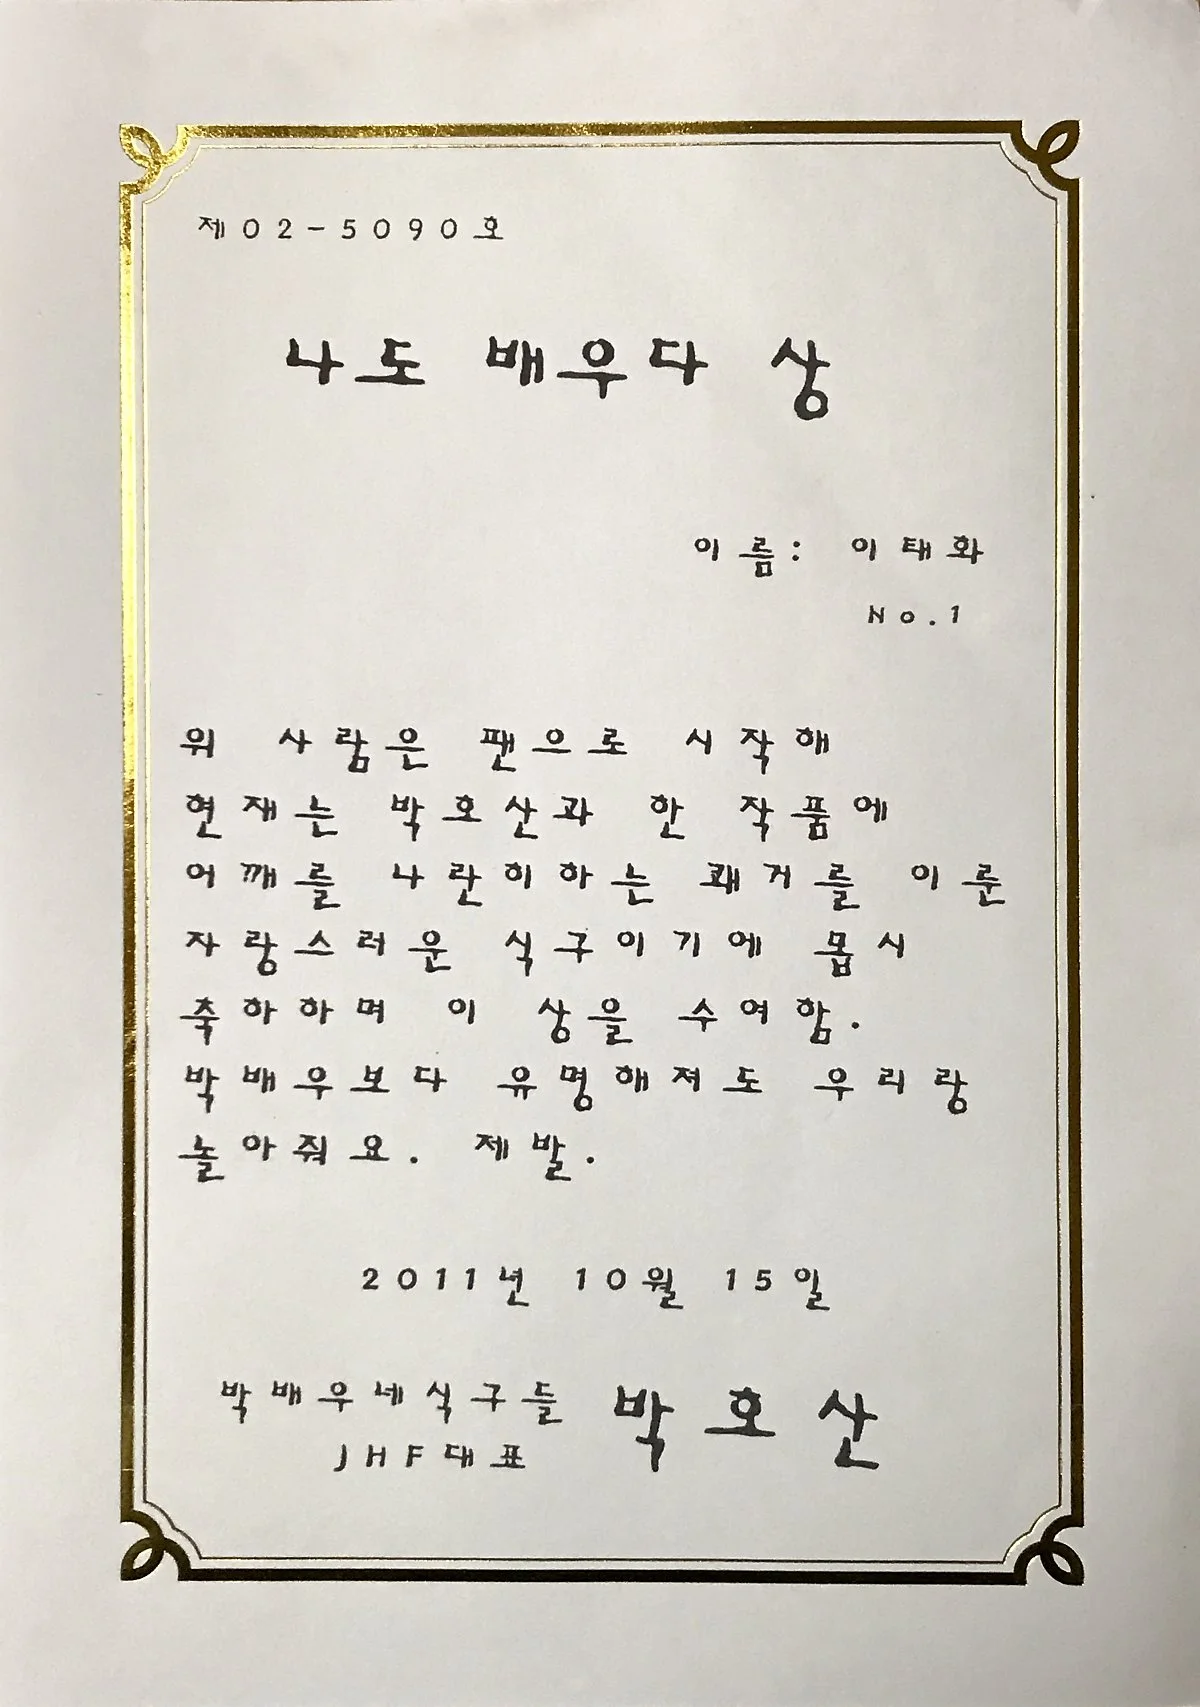 제02-5090호
나도 배우다 상
이름: 이태화
No.1
위 사람은 팬으로 시작해
현재는 박호산과 한 작품에
어깨를 나란히하는 쾌거를 이룬
자랑스러운 식구이기에 몹시
축하하며 이 상을 수여함.
박배우보다 유명해져도 우리랑
놀아줘요. 제발.
2011년 10월 15일
박배우네식구들 박호산
JHF대표